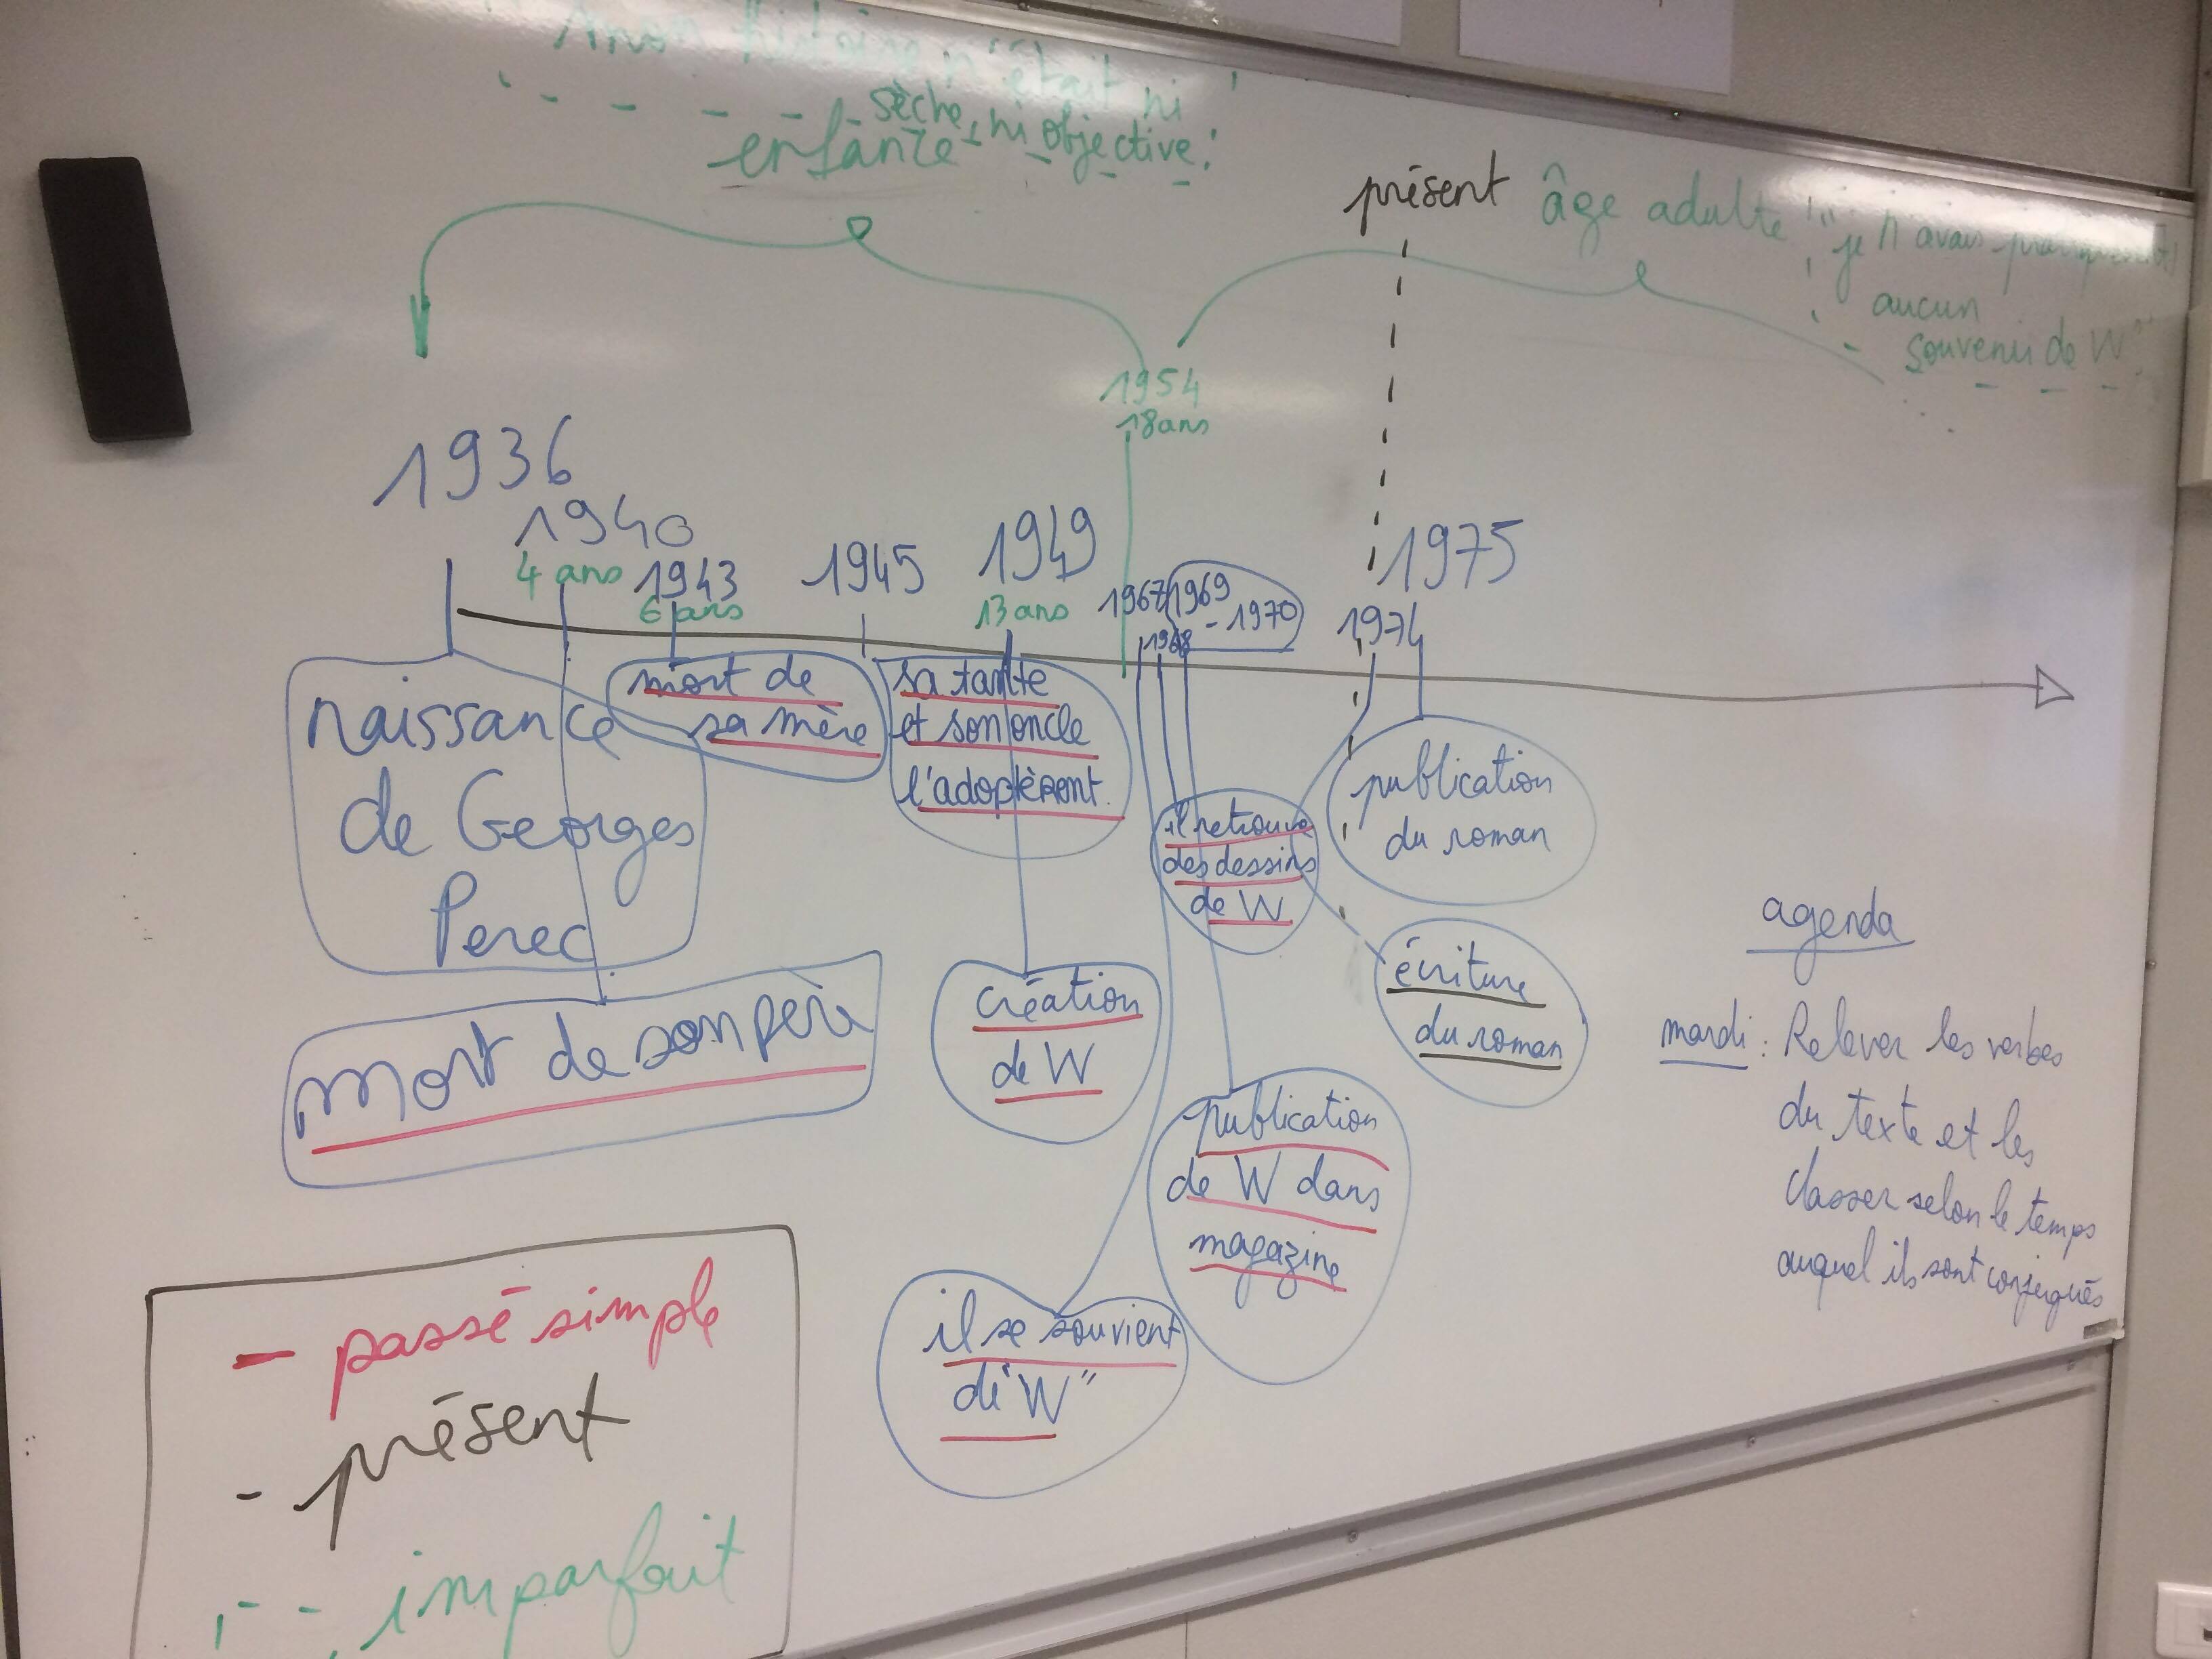 histoire n'était ni
sèche, ni objective.
enfance
présent
âge adulte
"je n'avais pratiquement
aucun
souvenir de W"
1954
18 ans
1936
1940
4 ans
1943
6 ans
1945
1949
13 ans
1967
1968
1969
- 1970
1974
1975
naissance
de Georges
Perec
mort de
sa mère
sa tante
et son oncle
l'adoptèrent.
il retrouve
des dessins
de W
publication
du roman
écriture
du roman
mort de son père
création
de W
publication
de W dans
magazine
il se souvient
de "W"
agenda
mardi : Relever les verbes
du texte et les
classer selon le temps
auquel ils sont conjugués
- passé simple
- présent
imparfait